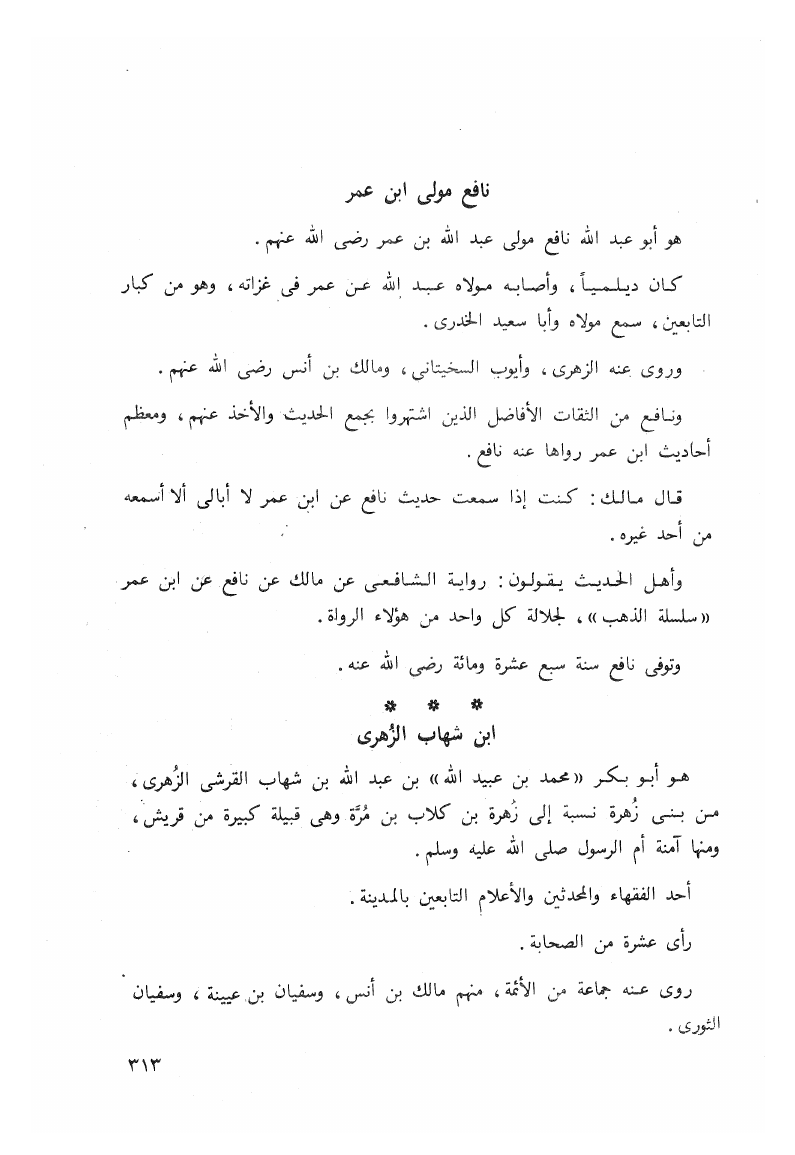 نافع مولى ابن عمر
هو أبو عبد الله نافع مولى عبد الله بن عمر رضى الله عنهم .
كان ديلمياً ، وأصابه مولاه عبد الله عن عمر فى غزاته ، وهو من كبار
التابعين ، سمع مولاه وأبا سعيد الخدرى .
وروى عنه الزهرى ، وأيوب السخيتانى ، ومالك بن أنس رضى الله عنهم .
ونافع من الثقات الأفاضل الذين اشتهروا بجمع الحديث والأخذ عنهم ، ومعظم
أحاديث ابن عمر رواها عنه نافع .
قال مالك : كنت إذا سمعت حديث نافع عن ابن عمر لا أبالى ألا أسمعه
من أحد غيره .
وأهل الحديث يقولون : رواية الشافعى عن مالك عن نافع عن ابن عمر
« سلسلة الذهب » ، لجلالة كل واحد من هؤلاء الرواة .
وتوفى نافع سنة سبع عشرة ومائة رضى الله عنه .
* * *
ابن شهاب الزُهرى
هو أبو بكر « محمد بن عبيد الله » بن عبد الله بن شهاب القرشى الزُهرى ،
من بنى زُهرة نسبة إلى زُهرة بن كلاب بن مُرَّة وهى قبيلة كبيرة من قريش ،
ومنها آمنة أم الرسول صلى الله عليه وسلم .
أحد الفقهاء والمحدثين والأعلام التابعين بالمدينة .
رأى عشرة من الصحابة .
روى عنه جماعة من الأئمة ، منهم مالك بن أنس ، وسفيان بن عيينة ، وسفيان
الثورى .
٣١٣